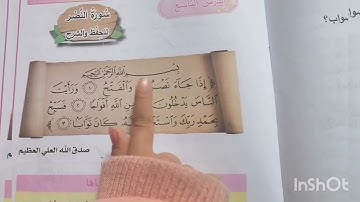 الدرس التاسع
سورة النصر
للحفظ والشرح
بسم الله الرحمن الرحيم
إذا جاء نصر والفتح ١ ورأيت
الناس يدخلون الله أفواجا ٢ فسبح
بحمد ربك واست كان توابا ٣
صدق الله العلي العظيم
InShOt